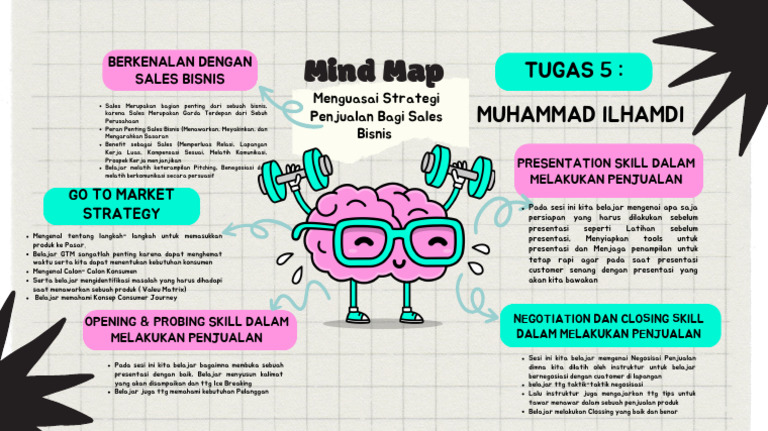 BERKENALAN DENGAN
SALES BISNIS
Sales Merupakan bagian penting dari sebuah bisnis,
karena Sales Merupakan Garda Terdepan dari Sebuh
Perusahaan
Peran Penting Sales Bisnis (Menawarkan, Meyakinkan, dan
Mengarahkan Sasaran
Benefit sebagai Sales (Memperluas Relasi, Lapangan
Kerja Luas, Kompensasi Sesuai, Melatih Komunikasi,
Prospek Kerja menjanjikan
Belajar melatih keterampilan Pitching, Benegosiasi d
melatih berkomunikasi secara persuasif
GO TO MARKET
STRATEGY
Mengenal tentang langkah- langkah untuk memasukkan
produk ke Pasar.
Belajar GTM sangatlah penting karena dapat menghemat
waktu serta kita dapat menentukan kebutuhan konsumen
Mengenal Calon- Calon Konsumen
Serta belajar mengidentifikasi masalah yang harus dihadapi
saat menawarkan sebuah produk ( Valeu Matrix)
Belajar memahami Konsep Consumer Journey
OPENING & PROBING SKILL DALAM
MELAKUKAN PENJUALAN
Pada sesi ini kita belajar bagaimna membuka sebuah
presentasi dengan baik. Belajar menyusun kalimat
yang akan disampaikan dan ttg Ice Breaking
Belajar juga ttg memahami kebutuhan Pelanggan
Mind Map
Menguasai Strategi
Penjualan Bagi Sales
Bisnis
TUGAS 5 :
MUHAMMAD ILHAMDI
PRESENTATION SKILL DALAM
MELAKUKAN PENJUALAN
Pada sesi ini kita belajar mengenai apa saja
persiapan yang harus dilakukan sebelum
presentasi seperti Latihan sebelum
presentasi, Menyiapkan tools untuk
presentasi dan Menjaga penampilan untuk
tetap rapi agar pada saat presentasi
customer senang dengan presentasi yang
akan kita bawakan
NEGOTIATION DAN CLOSING SKILL
DALAM MELAKUKAN PENJUALAN
Sesi ini kita belajar mengenai Negosisai Penjualan
dimna kita dilatih oleh instruktur untuk belajar
bernegosiasi dengan cuatomer di lapangan
belajar ttg taktik-taktik negosisasi
Lalu instruktur juga mengajarkan ttg tips untuk
tawar menawar dalam sebuah penjualan produk
Belajar melakukan Clossing yang baik dan benar